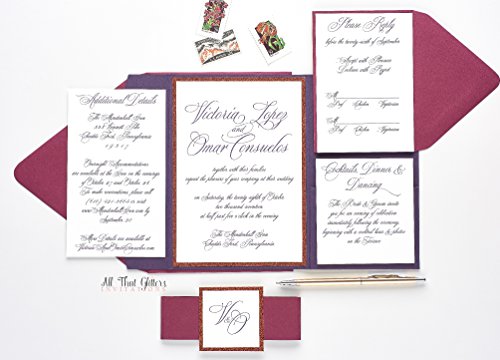 Additional Details
The Mendenhall Inn
Chadds Ford, Pennsylvania
19317
Overnight Accommodations
are available at the Inn on the evenings
To make reservations, please call
More Details are available at
Victoria Lopez
and
Omar Consuelos
together with their families
request the pleasure of your company at their wedding
on Saturday, the twenty eighth of October
two thousand seventeen
at half past five o'clock in the evening
The Mendenhall Inn
Chadds Ford, Pennsylvania
Please Reply
before the twenty-ninth of September
Accept with Pleasure
Decline with Regret
Beef Chicken Vegetarian
Beef Chicken Vegetarian
Cocktails, Dinner &
Dancing
The Bride & Groom invite you
for an evening of celebration
immediately following the ceremony,
beginning with a cocktail hour & photos
on the Terrace
All That Glitters
INVITATIONS
V&O